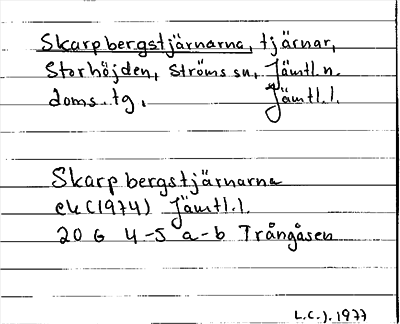 Skarpbergstjärnarna, tjärnar,
Storhöjden, Ströms sn, Jämtl. n.
doms. tg. Jämtl. l.
Skarpbergstjärnarna
ek (1974) Jämtl. l.
20 G 4-5 a-b Trångåsen
L.C.J. 1977